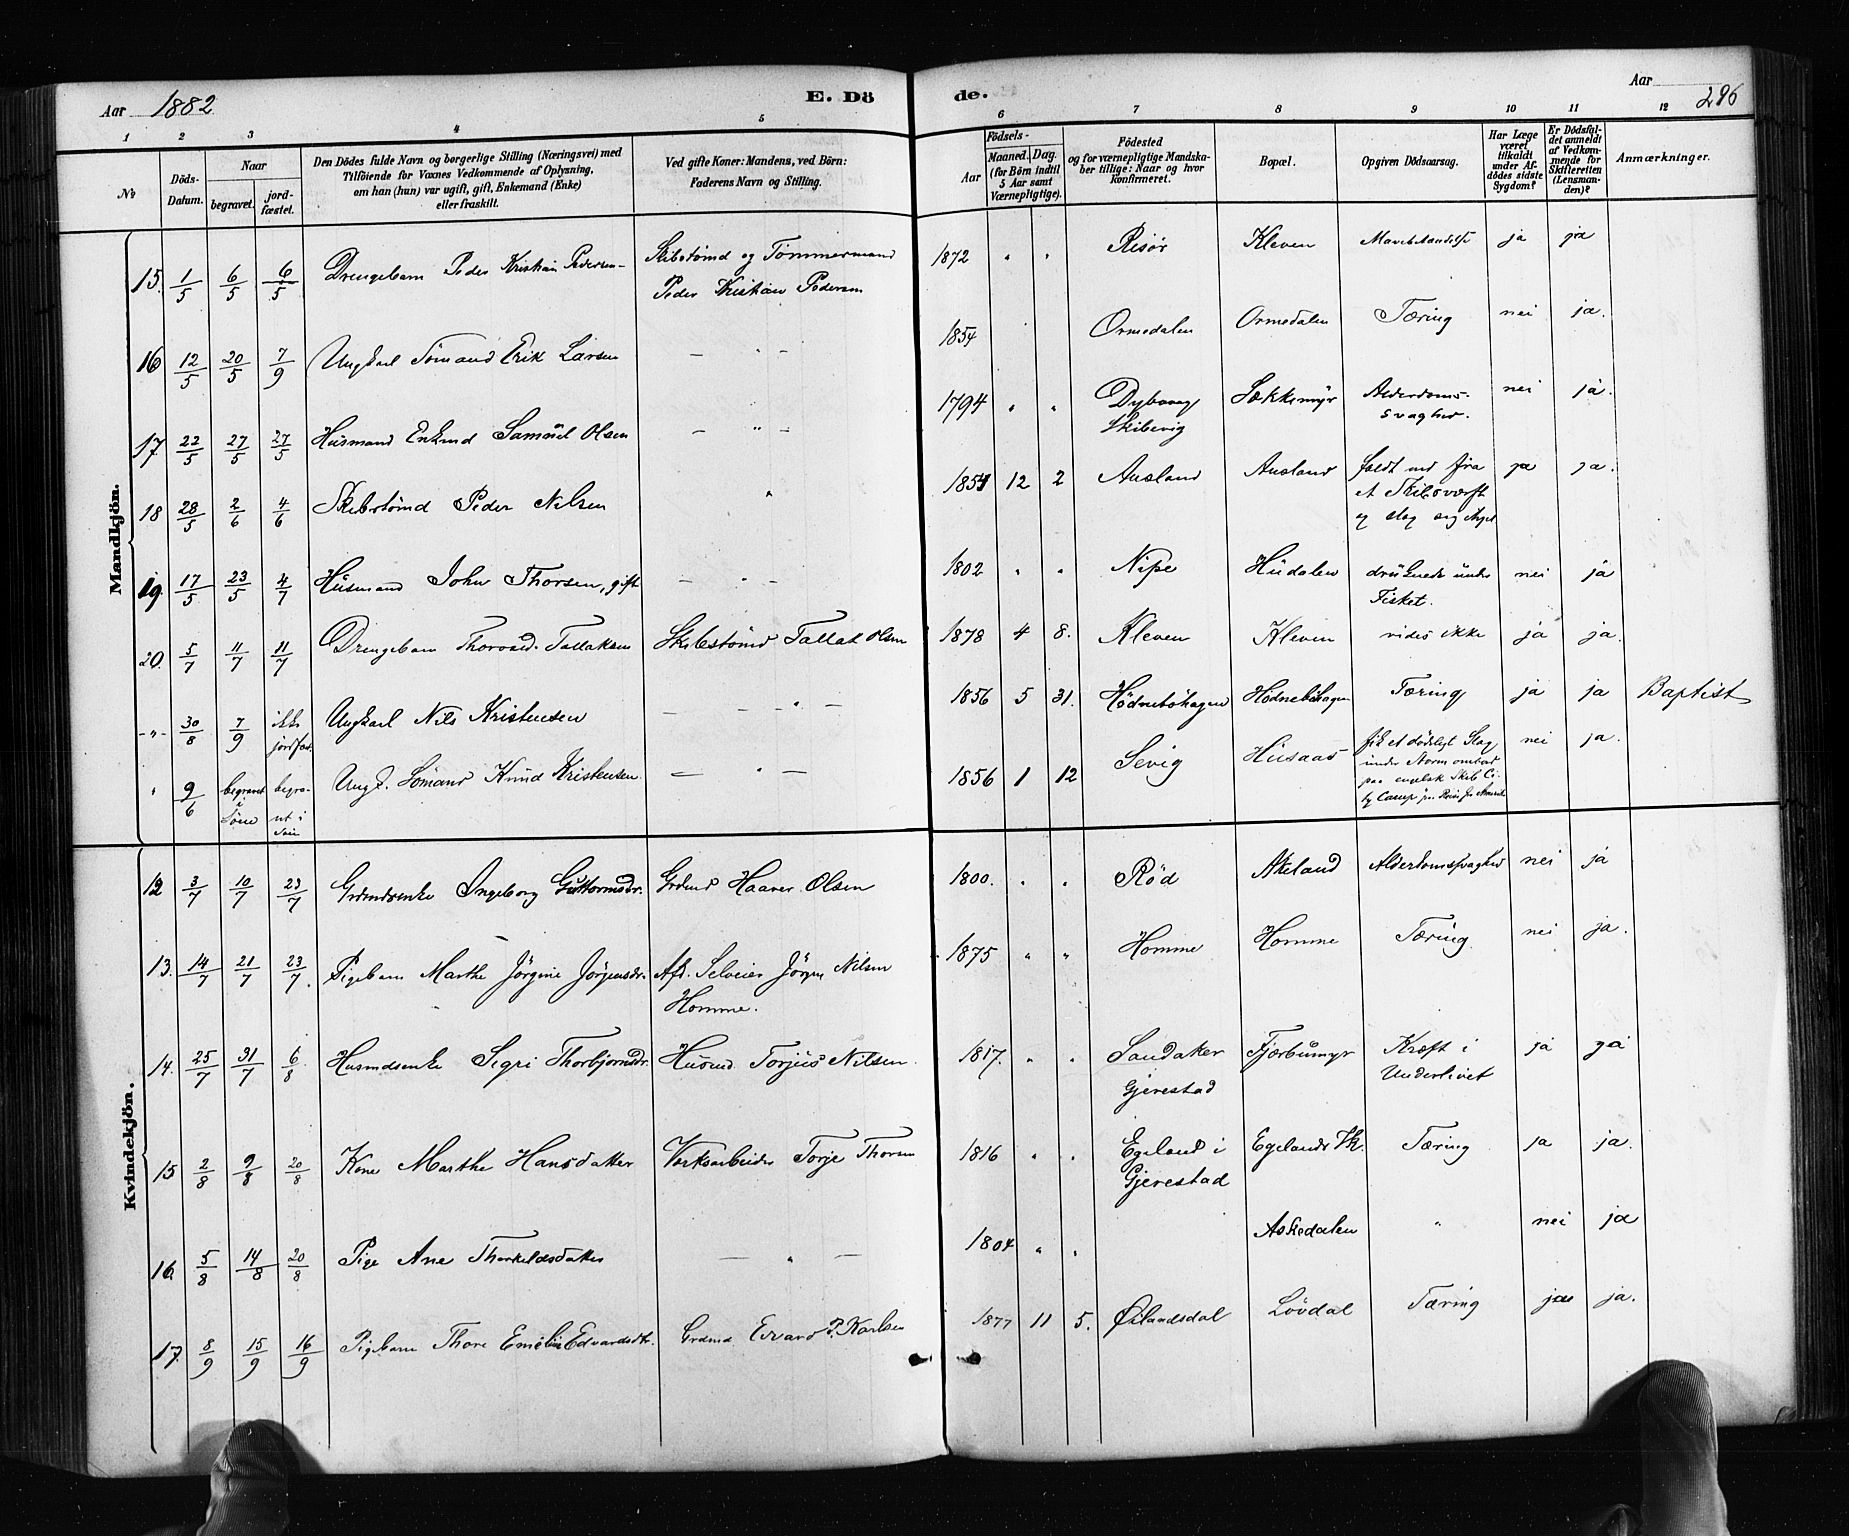 Aar 1882 E. Dö de. Aar 296
1 2 3 4 5 6 7 8 9 10 11 12
No
Döds-Datum.
Naar
begravet.
jordfæstet.
Den Dödes fulde Navn og borgerlige Stilling (Næringsvei) med
Tilföiende for Voxnes Vedkommende af Oplysning,
om han (hun) var ugift, gift, Enkemand (Enke)
eller fraskilt.
Ved gifte Koner: Mandens, ved Börn:
Faderens Navn og Stilling.
Födsels-
Aar
Maaned. Dag.
(for Börn indtil
5 Aar samt
Værnepligtige).
Födested
og for værnepligtige Mandska-
ber tillige: Naar og hvor
Konfirmeret.
Bopæl.
Opgiven Dödsaarsag.
Har Læge
været
tilkaldt
under Af-
dödes sidste
Sygdom?
Er Dödsfal-
det anmeldt
af Vedkom-
mende for
Skifteretten
(Lensman-
den)?
Anmærkninger.
Mandkjön.
15. 1/5 6/5 6/5 Drengebarn Peder Kristian Pedersen Skibstömd og Tömmermand 1872 " " Risør Kleven ja ja
Peder Kristian Pedersen
16 12/5 20/5 7/9 Ungkarl Sömand Erik Larsen — " — 1854 Ormedalen Ormedalen Tæring nei ja.
17 22/5 27/5 27/5 Husmand Enkmd Samuel Olsen — " — 1794 " " Dybvaag Sækkemyr Alderdoms- nei ja.
Skibevig svaghed.
18 28/5 2/6 4/6 Skibstömd Peder Nilsen " 1854 12 2 Ausland Ausland faldt ned fra ja ja.
et Skibsværft
og slog sig
19 17/5 23/5 4/7 Husmand John Thorsen, gift — " — 1802 " " Nipe Hudalen druknede under nei ja
Fisket.
20. 5/7 11/7 11/7 Drengebarn Thorvald Tallaksen Skibstömd Tallak Olsen 1878 4 8. Kleven Kleven vides ikke ja ja.
-"- 30/8 7/9 ikke jordfæs. Ungkarl Nils Kristensen — " — 1856 5 31. Hödneböhagen Hödneböhagen Tæring ja ja Baptist
" 9/6 begravet i Söen begravet i Söen Ungk. Sömand Knud Kristensen — " — 1856 1 12 Sevig Husaas fik et dödeligt Slag nei ja.
under Storm ombord
paa engelsk Skib Ci-
ty Camp paa Reise fra
Kvindekjön.
12 3/7 10/7 23/7 Grdmdsenke Ingeborg Guttormsdr. Grdmd Haaver Olsen 1800. " " Röd Akeland Alderdomssvaghed nei ja
13. 14/7 21/7 23/7. Pigebarn Marthe Jörgine Jörgensdr. Afd. Selveier Jörgen Nilsen 1875 " " Homme Homme Tæring. nei ja.
Homme.
14. 25/7 31/7 6/8 Husmdsenke Sigri Thorbjornsdr. Husmd Torjus Nilsen. 1817. " " Sandaker Fjærbumyr Kræft i ja ja
Gjerestad Underlivet
15 2/8 9/8 20/8 Kone Marthe Hansdatter Verksarbeider Torje Thorsen 1816 " " Egeland i Egelands Vk. Tæring ja ja.
Gjerestad
16. 5/8 14/8 20/8 Pige Ane Thorkildsdatter — " — 1804 " " Askedalen " nei ja
17. 8/9 15/9 16/9 Pigebarn Thora Emelie Edvardsdtr. Grdmd Edvard P. Karlsen 1877 11 5. Øilandsdal Lövdal Tæring ja ja.